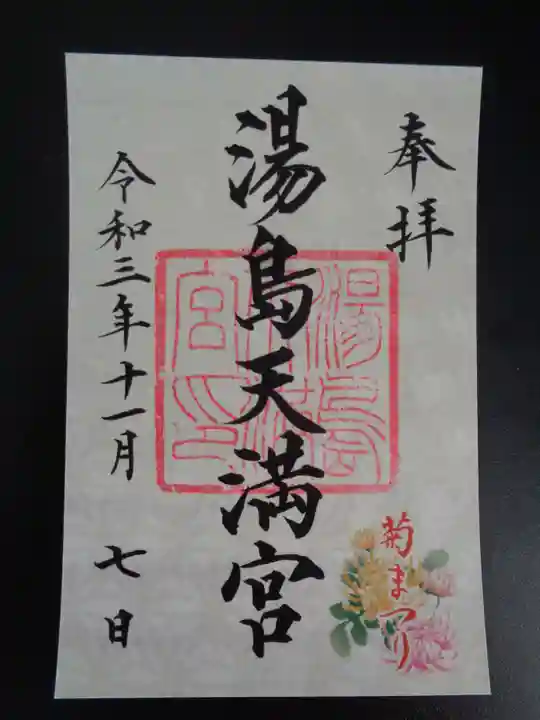 奉拝
湯島天満宮
湯島天満宮印
菊まつり
令和三年十一月 七日